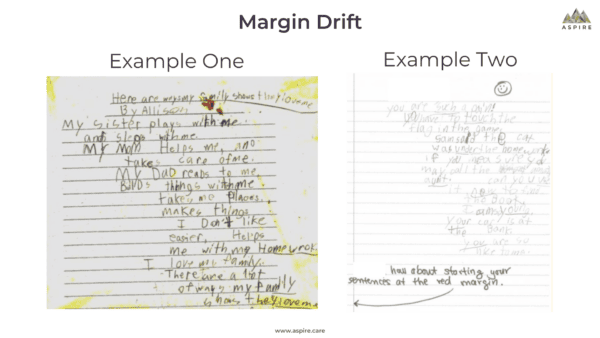 Margin Drift
ASPIRE
Example One
Example Two
Here are ways my family shows they love me
By Allison
My sister plays with me.
and sleps with me.
My Mom Helps me, and
takes care of me.
My Dad reads to me
Bilds things with me
takes me places.
makes things
I Don't like
easer, Helps
me with my Homework
I love my family.
There are a lot
of ways my family
shows they love me
you are such a
to touch the
flag in the game.
the cat
was under the
if you
may
right.
the book.
your cat is at
the Bank.
you are so
how about starting your
sentences at the red margin.
www.aspire.care